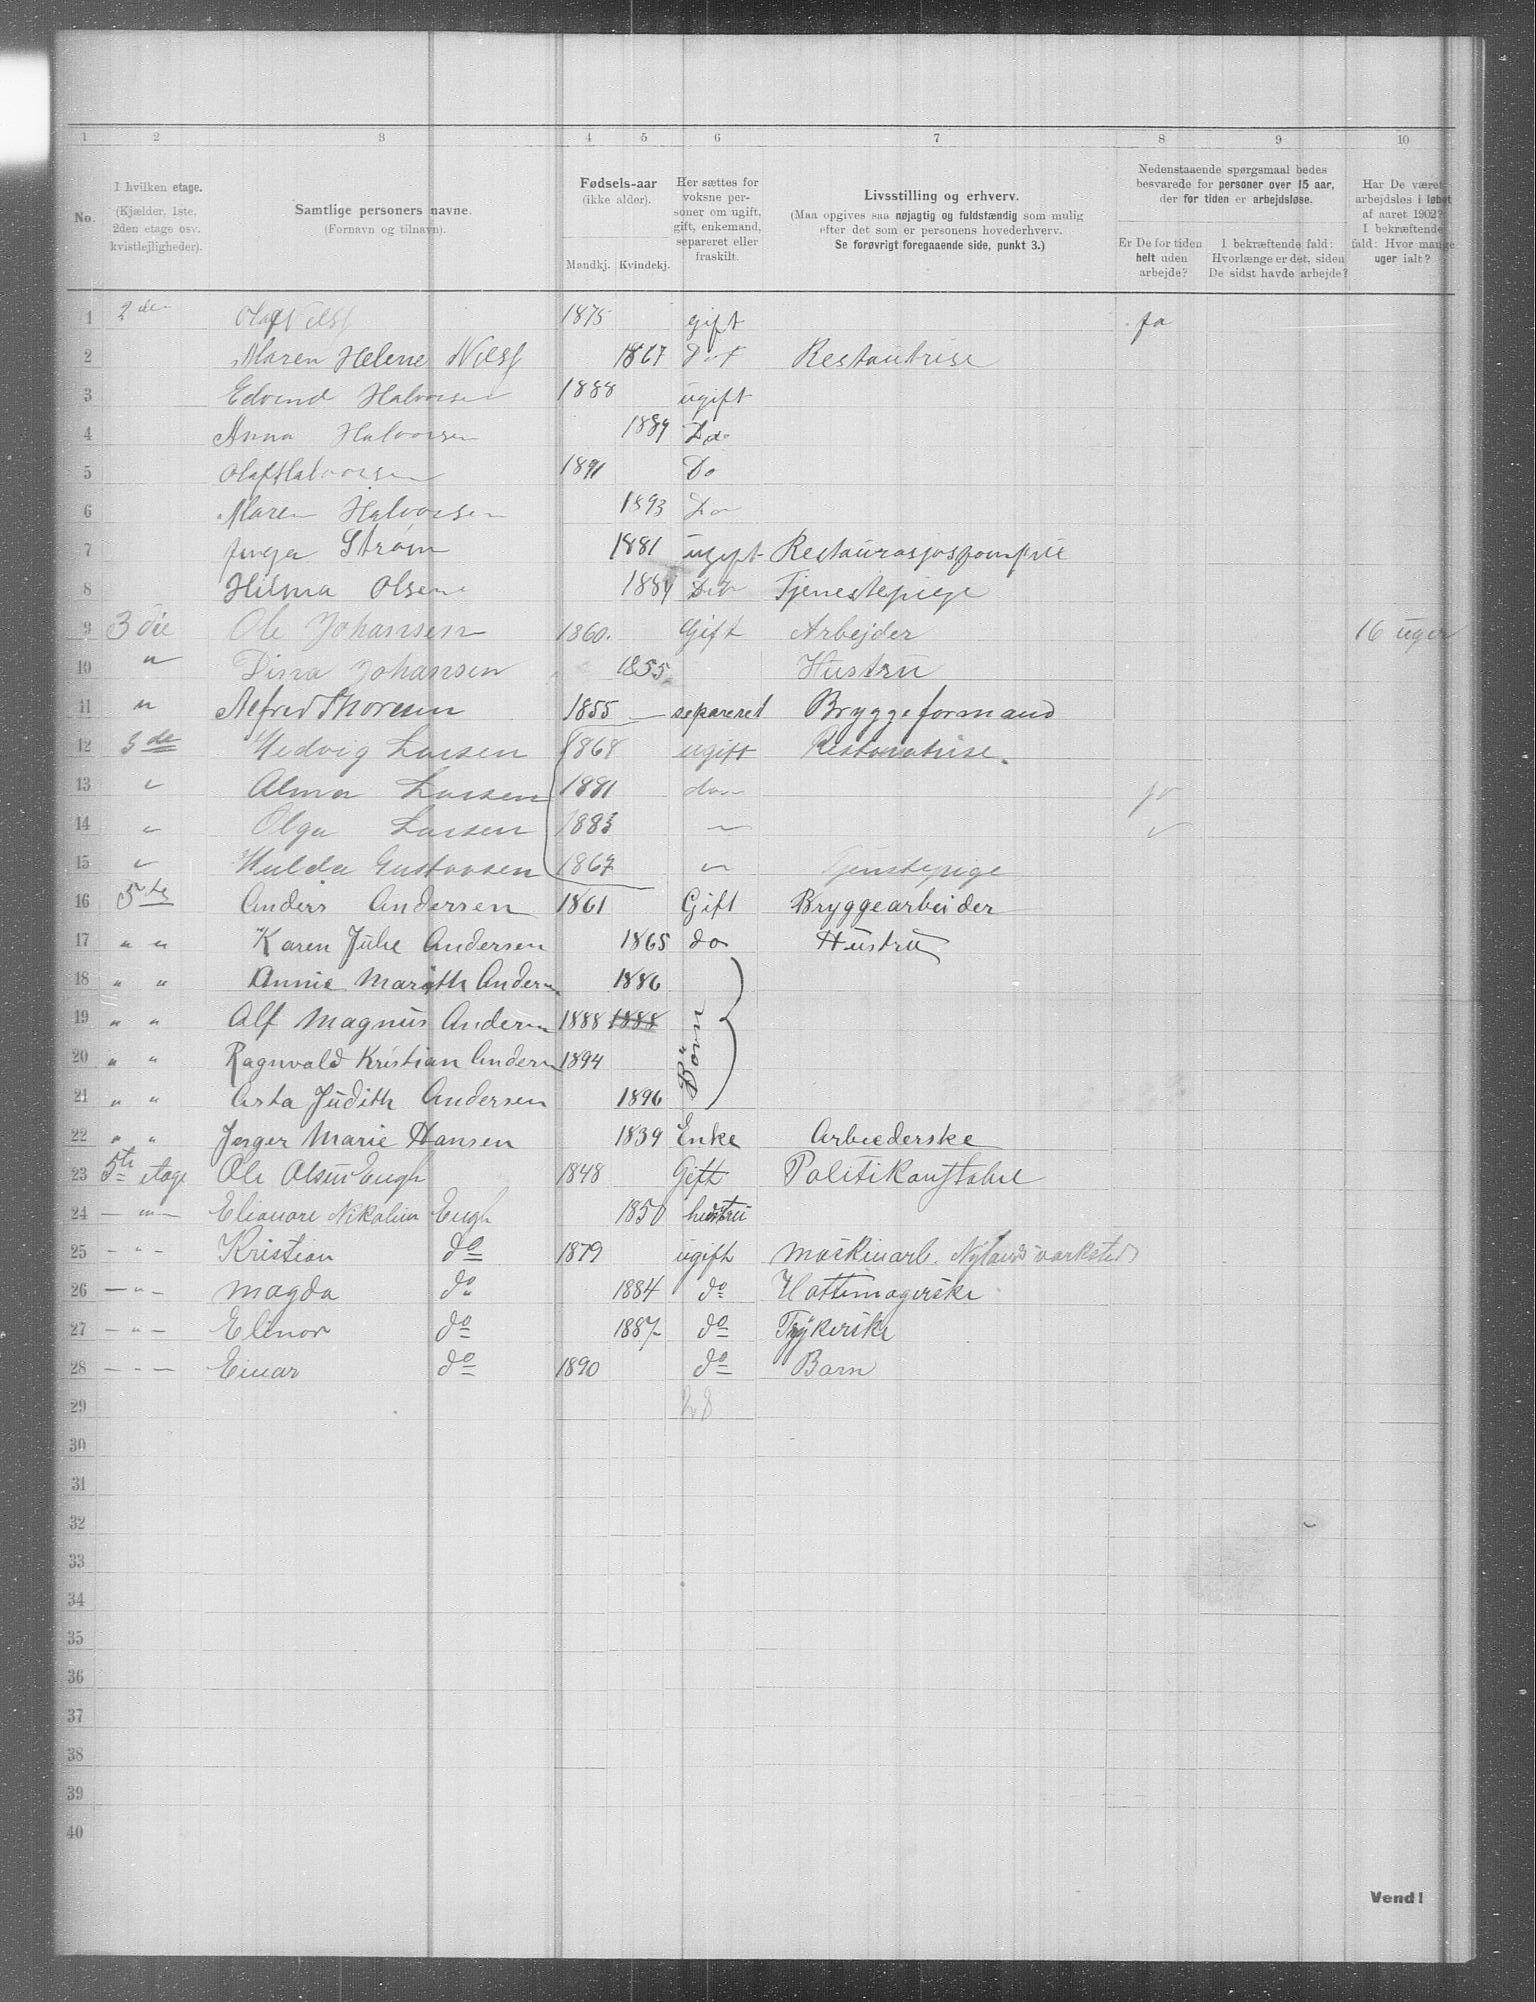 1 2 3 4 5 6 7 8 9 10
No.
I hvilken etage.
(Kjælder, 1ste,
2den etage osv.
kvistlejligheder).
Samtlige personers navne.
(Fornavn og tilnavn).
Fødsels-aar
(ikke alder).
Mandkj. Kvindekj.
Her sættes for
voksne per-
soner om ugift,
gift, enkemand,
separeret eller
fraskilt.
Livsstilling og erhverv.
(Maa opgives saa nøjagtig og fuldstændig som mulig
efter det som er personens hovederhverv.
Se forøvrigt foregaaende side, punkt 3.)
Nedenstaaende spørgsmaal bedes
besvarede for personer over 15 aar,
der for tiden er arbejdsløse.
Er De for tiden
helt uden
arbejde?
I bekræftende fald:
Hvorlænge er det, siden
De sidst havde arbejde?
Har De været
arbejdsløs i løbet
af aaret 1902?
I bekræftende
fald: Hvor mange
uger ialt?
1 2den Olaf Nilss 1875 gift ja
2 Maren Helene Nilss 1867 Restautrise
3 Edvend Halvorsen 1888 ugift
4 Anna Halvorsen 1889 Do
5 Olaf Halvorsen 1891 Do
6 Maren Halvorsen 1893 Do
7 Strøm 1881 ugift
8 Hilma Olsen 1884 Do Tjenestepige
9 3die Ole Johansen 1860. Gift Arbejder 16 uger
10 " Dina Johansen 1855 Hustru
11 " Alfred Thoresen 1855 separeret Bryggeformand
12 3de Hedvig Larsen 1868 ugift Restoratrise.
13 " Alma Larsen 1881 do ja
14 " Olga Larsen 1883 " "
15 " Hulda Gustavsen 1867 " Tjenstepige
16 5te Anders Andersen 1861 Gift Bryggearbeider
17 " " Karen Julie Andersen 1865 do Hustru
18 " " Annie Marith Andersn 1886
19 " " Alf Magnus Andersn 1888 1888
20 " " Ragnvald Kristian Andersn 1894
Börn
21 " " Asta Judith Andersen 1896
22 " " Jnger Marie Hansen 1839 Enke Arbiederske
23 5te etage Ole Olsen Engh 1848 Gift Politikonstabel
24 — " — Elionore Nikoline Engh 1850 hustru
25 - " - Kristian do 1879 ugift Maskinarb. Nylands varksted
26 — " — Magda do 1884 do Hattemagerske
27 — " — Elinor do 1887 do Trykerske
28 — - — Einar do 1890 do Barn
29 28
30
31
32
33
34
35
36
37
38
39
40
Vend!